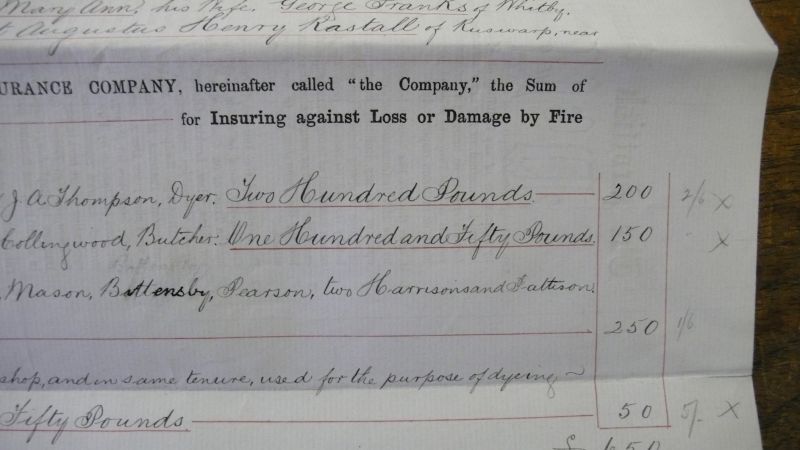 Mary Ann, his Wife. George Franks of Whitby.
Augustus Henry Rastall of Ruswarp, near
URANCE COMPANY, hereinafter called "the Company," the Sum of
for Insuring against Loss or Damage by Fire
J. A Thompson, Dyer. Two Hundred Pounds 200 2/6 X
Collingwood, Butcher. One Hundred and Fifty Pounds. 150 " X
Mason, Battensby, Pearson, two Harrisons and Pattison.
250 1/6
shop, and in same tenure, used for the purpose of dyeing ~
Fifty Pounds 50 5/- X
£ 650